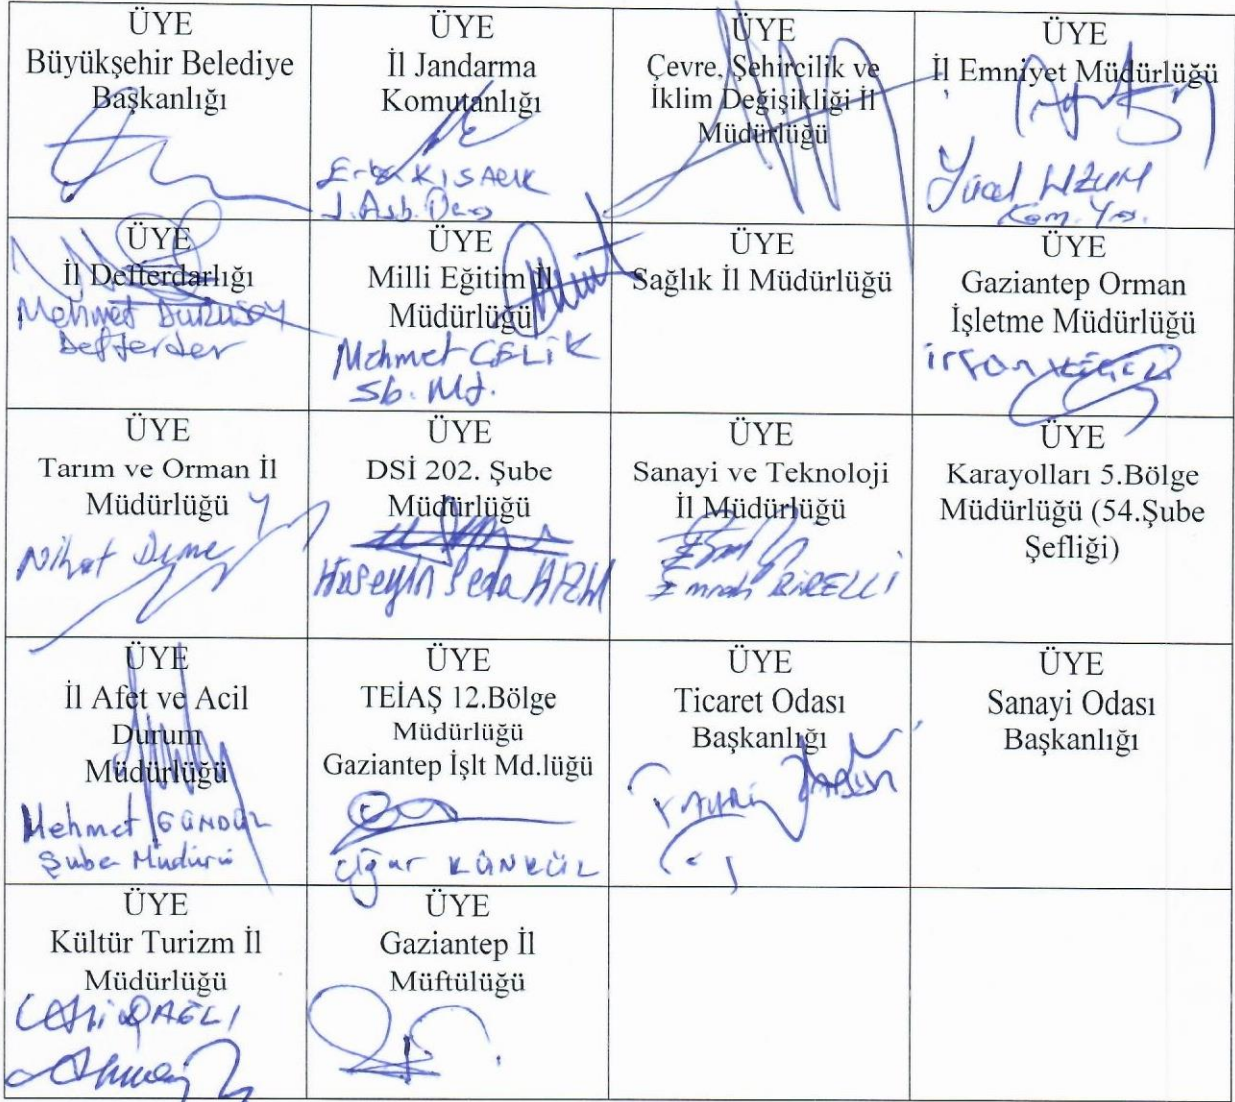 ÜYE
Büyükşehir Belediye
Başkanlığı
ÜYE
İl Jandarma
Komutanlığı
KISACIK
J.Asb.
ÜYE
Çevre, Şehircilik ve
İklim Değişikliği İl
Müdürlüğü
ÜYE
İl Emniyet Müdürlüğü
Yücel UZUM
Kom. Yrd.
ÜYE
İl Defterdarlığı
Mehmet DURUSOY
Defterdar
ÜYE
Milli Eğitim İl
Müdürlüğü
Mehmet ÇELİK
Şb. Md.
ÜYE
Sağlık İl Müdürlüğü
ÜYE
Gaziantep Orman
İşletme Müdürlüğü
irfan
ÜYE
Tarım ve Orman İl
Müdürlüğü
Nihat
ÜYE
DSİ 202. Şube
Müdürlüğü
Hüseyin Seda
ÜYE
Sanayi ve Teknoloji
İl Müdürlüğü
Emrah BİRELLİ
ÜYE
Karayolları 5.Bölge
Müdürlüğü (54.Şube
Şefliği)
ÜYE
İl Afet ve Acil
Durum
Müdürlüğü
Mehmet GÜNDÜZ
Şube Müdürü
ÜYE
TEİAŞ 12.Bölge
Müdürlüğü
Gaziantep İşlt Md.lüğü
KÜNKÜL
ÜYE
Ticaret Odası
Başkanlığı
ÜYE
Sanayi Odası
Başkanlığı
ÜYE
Kültür Turizm İl
Müdürlüğü
DAĞLI
ÜYE
Gaziantep İl
Müftülüğü